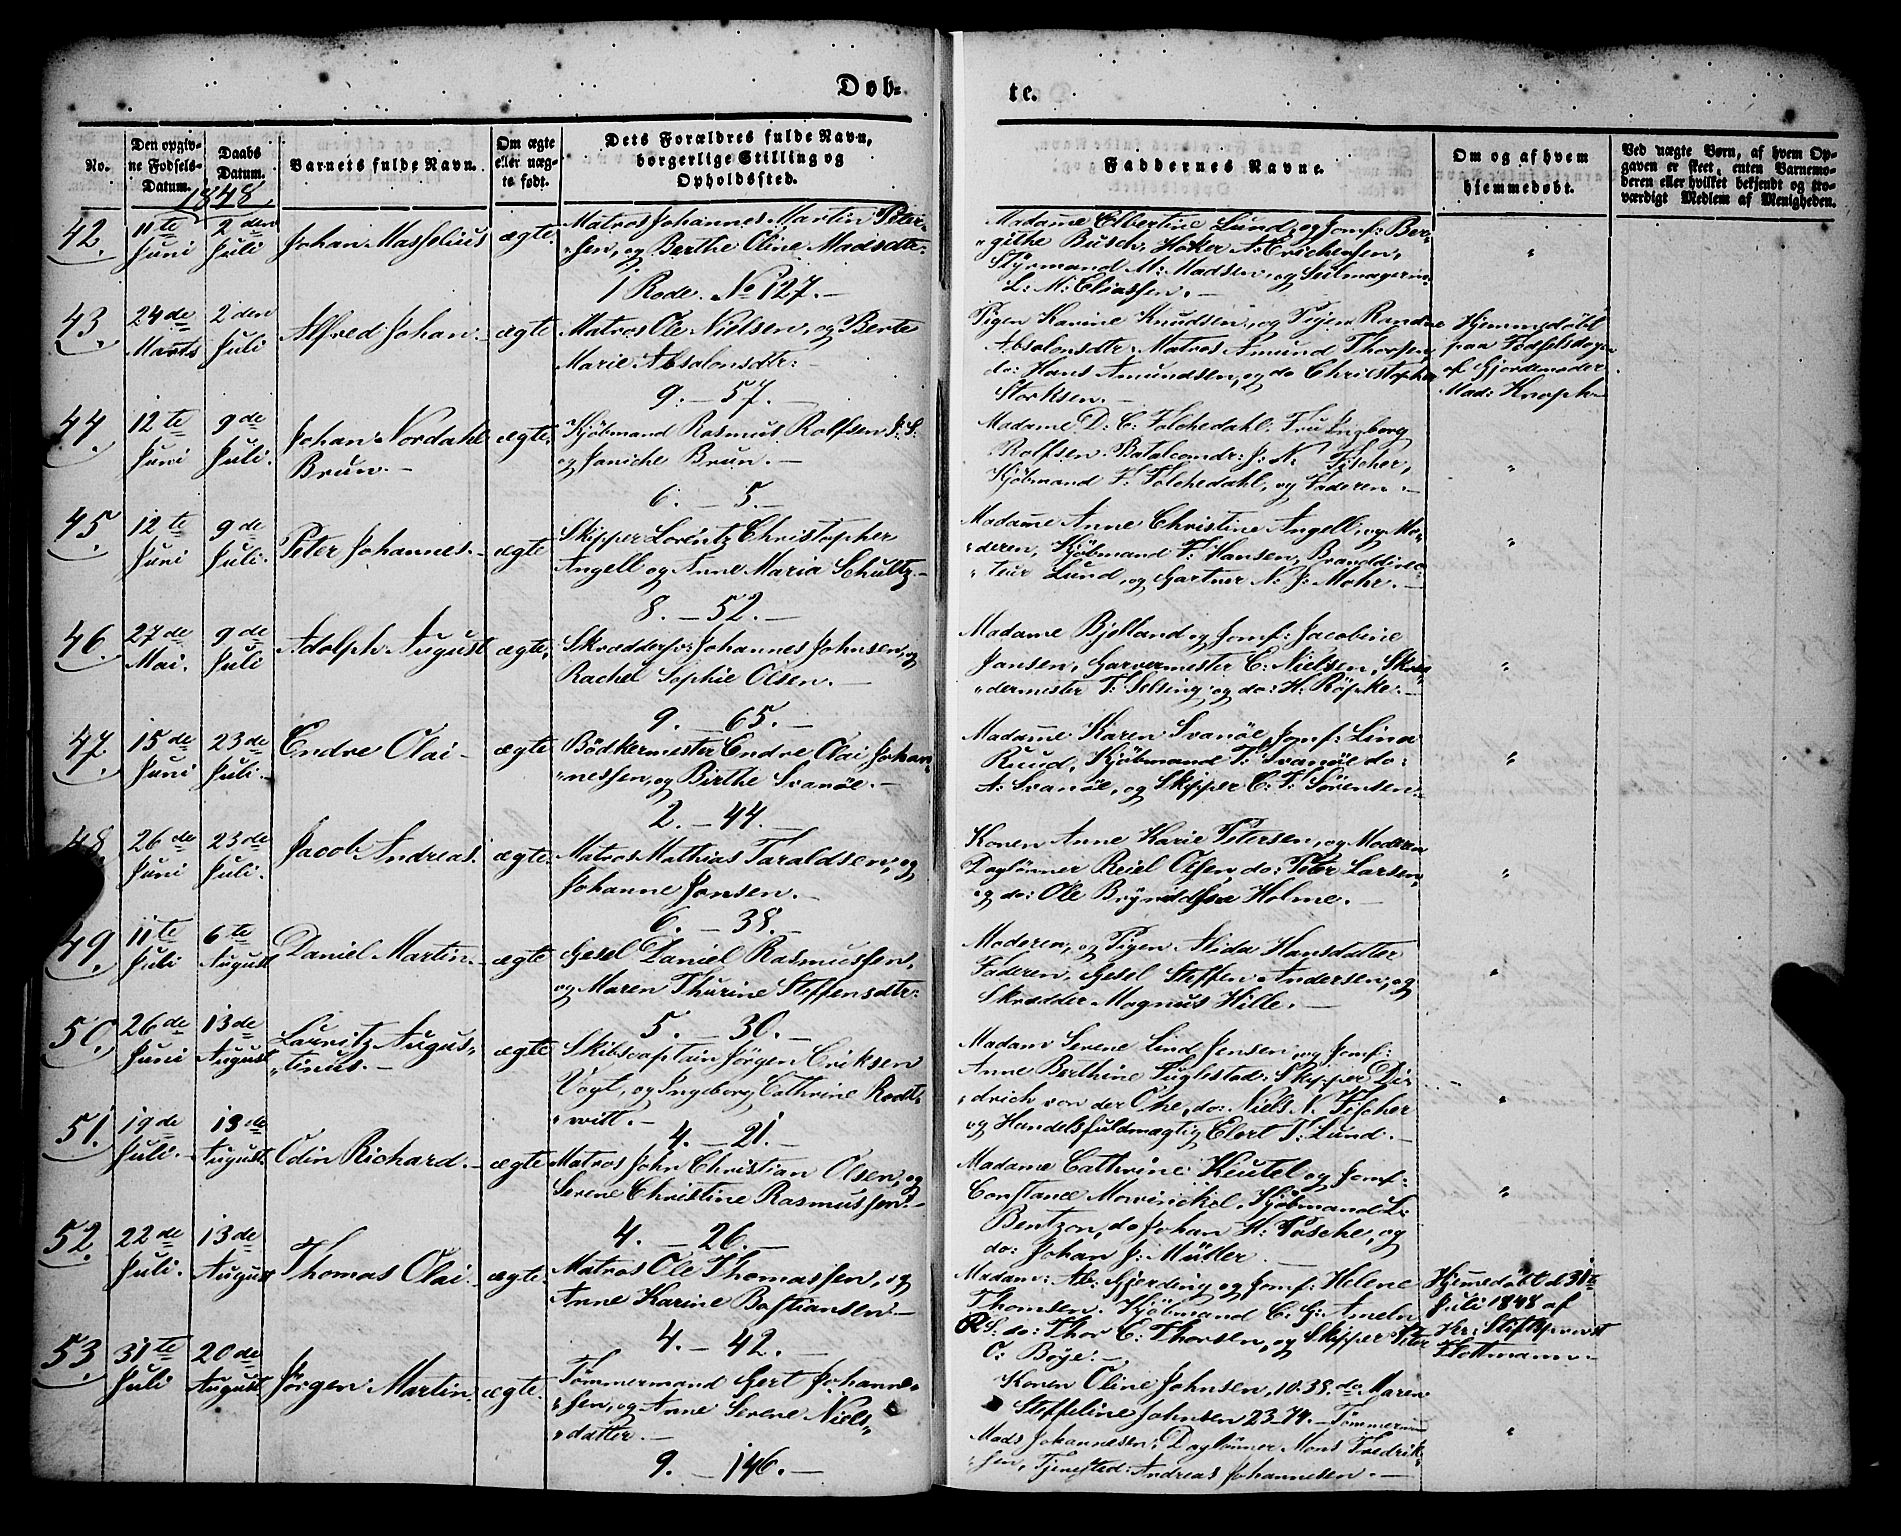 Døb-
te.
No.
Den opgiv-
ne Fødsels-
Datum.
Daabs
Datum.
1848
Barnets fulde Navn.
Om ægte
eller uæg-
te født.
Dets Forældres fulde Navn,
borgerlige Stilling og
Opholdssted.
Faddernes Navne.
Om og af hvem
hjemmedøbt.
Ved uægte Børn, af hvem Op-
gaven er skeet, enten Barnemo-
deren eller hvilket bekjendt og tro-
værdigt Medlem af Menigheden.
42.
11te
Juni
2den
Juli
Johan Masselius
ægte
Matros Johannes Martin Peter-
sen, og Berthe Oline Madsdtr.
1 Rode. No 127.
Madame Elbertine Lund, og Jomf: Ber-
githe Busch, Høker A: Erichsen,
Styrmand M: Madsen, og Seilmagerm:
L: M: Eliassen.
"
43.
24de
Marts
2den
Juli
Alfred Johan
ægte
Matros Ole Nielsen, og Berte
Marie Absalonsdtr:
9. — 57.
Pigen Karine Knudsen, og Pigen Randi
Absalonsdtr: Matros Amund Thorsen,
do: Hans Amundsen, og do Christopher
Storksen.
Hjemmedøbt
paa Fødselsdagen
af Gjordemoder
Mad: Knoph
44.
12te
Juni
9de
Juli.
Johan Nordahl
Brun.
ægte
Kjøbmand Rasmus Rolfsen J: S:
og Janiche Brun.
6. — 5.
Madame D. C. Tolchedahl. Fru Ingborg
Rolfsen. Batalcomdr: J: N: Fischer,
Kjøbmand F: Tolchedahl, og Faderen.
"
45.
12te
Juni
9de
Juli.
Peter Johannes.
ægte
Skipper Lorentz Christopher
Angell og Anne Maria Schultz
8. — 52.
Madame Anne Christine Angell, og Mo-
deren, Kjøbmand F: Hansen, Branddirec-
teur Lund, og Gartner N: J: Mohr.
"
46.
27de
Mai.
9de
Juli
Adolph August
ægte
Skræddersv: Johannes Johnsen, og
Rachel Sophie Olsen.
9. — 65.
Madame Bjelland og Jomf: Jacobine
Jansen, Garvermester C: Nielsen, Skræ-
dermester T: Selsing og do: H. Röpke.
"
47.
15de
Juni
23de
Juli.
Endre Olai
ægte
Bødkermester Endre Olai Johan-
nessen, og Birthe Svanöe.
2. — 44.
Madame Karen Svanöe, Jomf: Lina
Ruud, Kjøbmand T: Svanöe do:
A: Svanöe, og Skipper C: F: Sörensen
"
48.
26de
Juni
23de
Juli.
Jacob Andreas
ægte
Matros Mathias Taraldsen, og
Johanne Jansen.
6. — 38.
Konen Anne Karie Petersen, og Moderen
Daglönner Reiel Olsen, do: Peter Larsen,
og do: Ole Holme.
"
49.
11te
Juli
6te
August
Daniel Martin.
ægte
Gesel Daniel Rasmussen,
og Maren Thurine Steffensdtr:
5. — 30.
Moderen, og Pigen Alida Hansdatter
Faderen, Gesel Steffen Andersen, og
Skrædder Magnus Hille.
"
50.
26de
Juni
13de
August
Laurits Augus-
tinus.
ægte
Skibscaptain Jørgen Eriksen
Vogt, og Ingeborg Cathrine Rodt-
witt.
4. — 21.
Madam Serene Lind Jensen og Jomf:
Anne Berthine Fuglestad: Skipper Did-
drich von der Ohe, do: Niels N. Fischer
og Handelsfuldmægtig Elert T: Lund.
"
51.
19de
Juli.
13de
August
Odin Richard.
ægte
Matros John Christian Olsen, og
Serene Christine Rasmussen.
4. — 26.
Madame Cathrine Keutel og Jomf:
Constance Mowinckel, Kjøbmand L:
Bentzon, do Johan H. Pasche, og
do: Johan J: Müller
"
52.
22de
Juli.
13de
August
Thomas Olai
ægte
Matros Ole Thomassen, og
Anne Karine Bastiansen
4. — 42.
Madam: Ab. Gjerding og Jomf: Helene
Thomsen. Kjøbmand C. G: Ameln
R S: do: Thor E: Thorsen, og Skipper Peter
O: Böye.
Hjemedöbt d 31te
Juli 1848 af
Hr: Stiftsprovst
Flottmann.
53.
31te
Juli
20de
August
Jörgen Martin
ægte
Tømmermand Gert Johanne-
sen, og Anne Serene Niels-
datter.
9. — 146.
Konen Oline Johnsen, 10.38. do: Maren
Steffeline Johnsen 23-74. Tömmerm
Mads Johannesen: Daglønner Mons Fredrik-
sen, Tjenested: Andreas Johannesen.
"